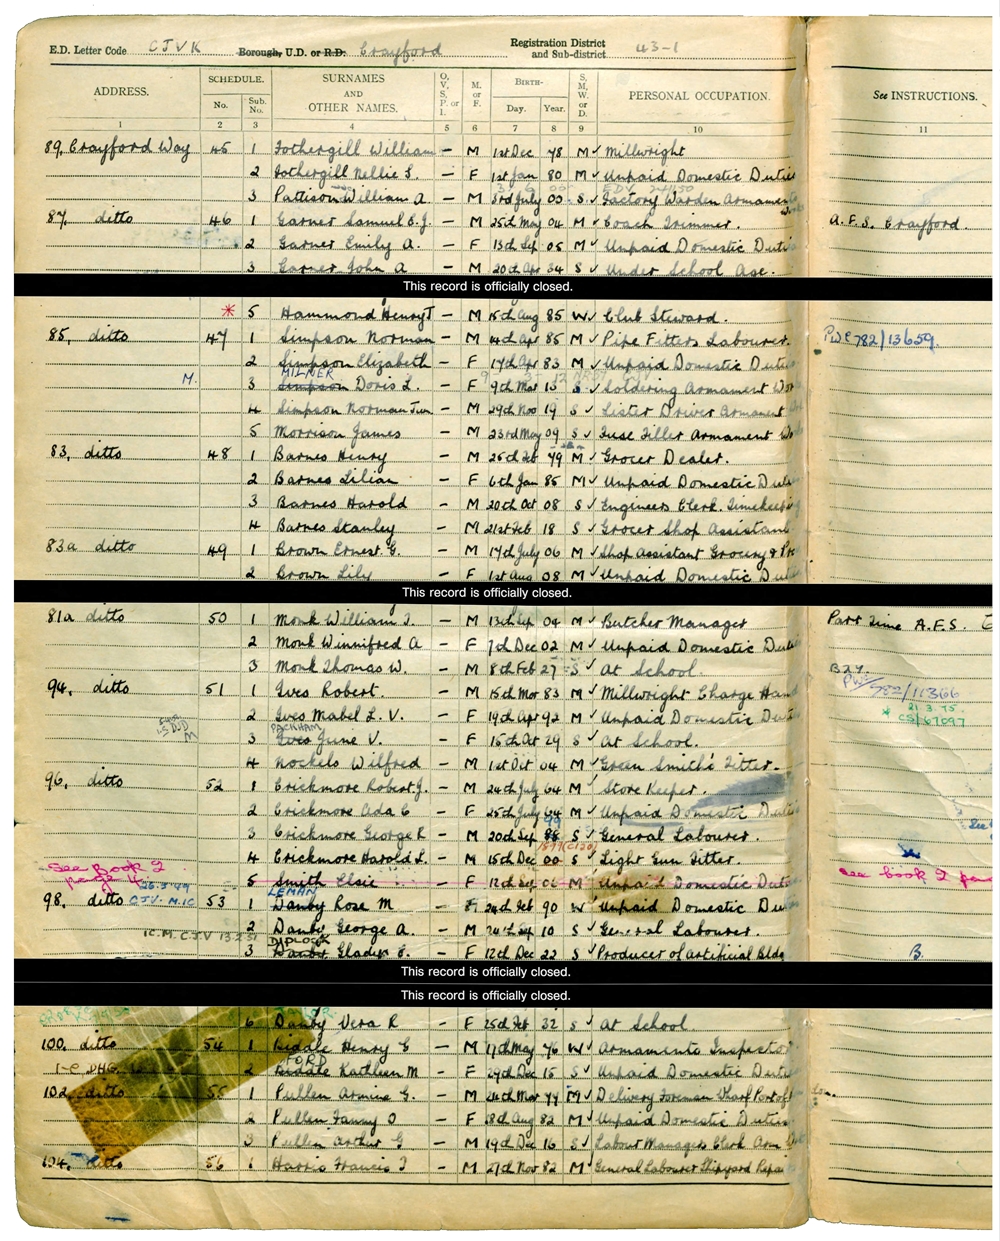 E.D. Letter Code CJVK Borough, U.D. or R.D. Crayford Registration District and Sub-district 43-1
ADDRESS. SCHEDULE. No. Sub. No. SURNAMES AND OTHER NAMES. O, V, S, P, or I. M. or F. BIRTH- Day. Year. S, M, W, or D. PERSONAL OCCUPATION. See INSTRUCTIONS.
1 2 3 4 5 6 7 8 9 10 11
89, Crayford Way 45 1 Fothergill William – M 1st Dec 78 M ✓ Millwright
2 Fothergill Nellie – F 1st Jan 80 M ✓ Unpaid Domestic Duties
3 Pattison William A. – M 3rd July 00 S ✓ Factory Warden Armaments
87, ditto 46 1 Garner Samuel E.J. – M 25th May 04 M ✓ Coach Trimmer. A.F.S. Crayford.
2 Garner Emily A. – F 13th Sep 05 M ✓ Unpaid Domestic Duties
3 Garner John A – M 20th Apr 34 S ✓ Under School Age.
This record is officially closed.
* 5 Hammond Henry T – M 15th Aug 85 W ✓ Club Steward.
85, ditto 47 1 Simpson Norman – M 14th Apr 85 M ✓ Pipe Fitters Labourer. 782/13659
2 Simpson Elizabeth – F 17th Apr 83 M ✓ Unpaid Domestic Duties
MILNER
M. 3 Simpson Doris L. – F 9th Mar 13 S ✓ Soldering Armament
4 Simpson Norman Jun – M 29th Nov 19 S ✓ Lister Driver Armament
5 Morrison James – M 23rd May 09 S ✓ Fuse Filler Armament
83, ditto 48 1 Barnes Henry – M 26th Feb 79 M ✓ Grocer Dealer.
2 Barnes Lilian – F 6th Jan 85 M ✓ Unpaid Domestic Duties
3 Barnes Harold – M 20th Oct 08 S ✓ Engineers Clerk. Timekeeping
4 Barnes Stanley – M 21st Feb 18 S ✓ Grocer Shop Assistant
83a ditto 49 1 Brown Ernest G. – M 17th July 06 M ✓ Shop Assistant Grocery & Pro
2 Brown Lily – F 1st Aug 08 M ✓ Unpaid Domestic Duties
This record is officially closed.
81a ditto 50 1 Monk William J. – M 13th Sep 04 M ✓ Butcher Manager Part Time A.F.S.
2 Monk Winnifred A – F 7th Dec 02 M ✓ Unpaid Domestic Duties
3 Monk Thomas W. – M 8th Feb 27 S ✓ At School.
94, ditto 51 1 Ives Robert. – M 15th Mar 83 M ✓ Millwright Charge Hand 782/11366
21.3.75
2 Ives Mabel L. V. – F 19th Apr 92 M ✓ Unpaid Domestic Duties * CS/67097
PACKHAM
M 3 Ives June V. – F 15th Oct 29 S ✓ At School.
4 Nockels Wilfred – M 1st Oct 04 M ✓ Green Smith's Fitter.
96, ditto 52 1 Crickmore Robert J. – M 24th July 64 M ✓ Store Keeper.
2 Crickmore Ada C – F 25th July 64 M ✓ Unpaid Domestic Duties
99
3 Crickmore George R – M 20th Sep 88 S ✓ General Labourer.
4 Crickmore Harold L. – M 15th Dec 00 S ✓ Light Gun Fitter.
See Book 2 page 4 5 Smith Elsie – F 12th Sep 06 M Unpaid Domestic Duties see book 2
26.3.49 LEMAN
98, ditto CJV. M.IC 53 1 Danby Rose M – F 24th Feb 90 W ✓ Unpaid Domestic Duties
2 Danby George A. – M 24th Sep 10 S ✓ General Labourer.
DIPLOCK
3 Danby Gladys E. – F 12th Dec 22 S ✓ Producer of artificial Bldg B.
This record is officially closed.
This record is officially closed.
6 Danby Vera R – F 25th Feb 32 S ✓ At School.
100, ditto 54 1 Biddle Henry G – M 17th May 76 W ✓ Armaments Inspector
FORD
2 Biddle Kathleen M – F 29th Dec 15 S ✓ Unpaid Domestic Duties
102, ditto 55 1 Pullen Armine G. – M 24th Mar 79 M ✓ Delivery Foreman Wharf Port of
2 Pullen Fanny O – F 18th Aug 82 M ✓ Unpaid Domestic Duties
3 Pullen Arthur G – M 19th Dec 16 S ✓ Labour Managers Clerk Arm
104, ditto 56 1 Harris Francis J – M 27th Nov 82 M ✓ General Labourer Shipyard Repai